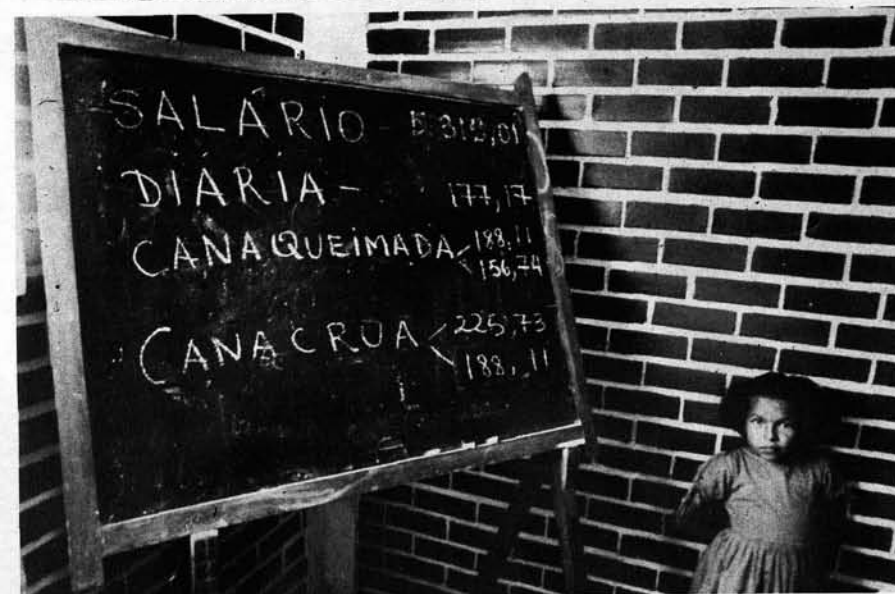 SALÁRIO - 5 312,01
DIÁRIA - 177,17
CANA QUEIMADA < 188,11
156,74
CANA CRUA < 225,73
188,11